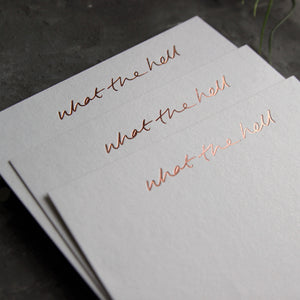 what the hell
what the hell
what the hell